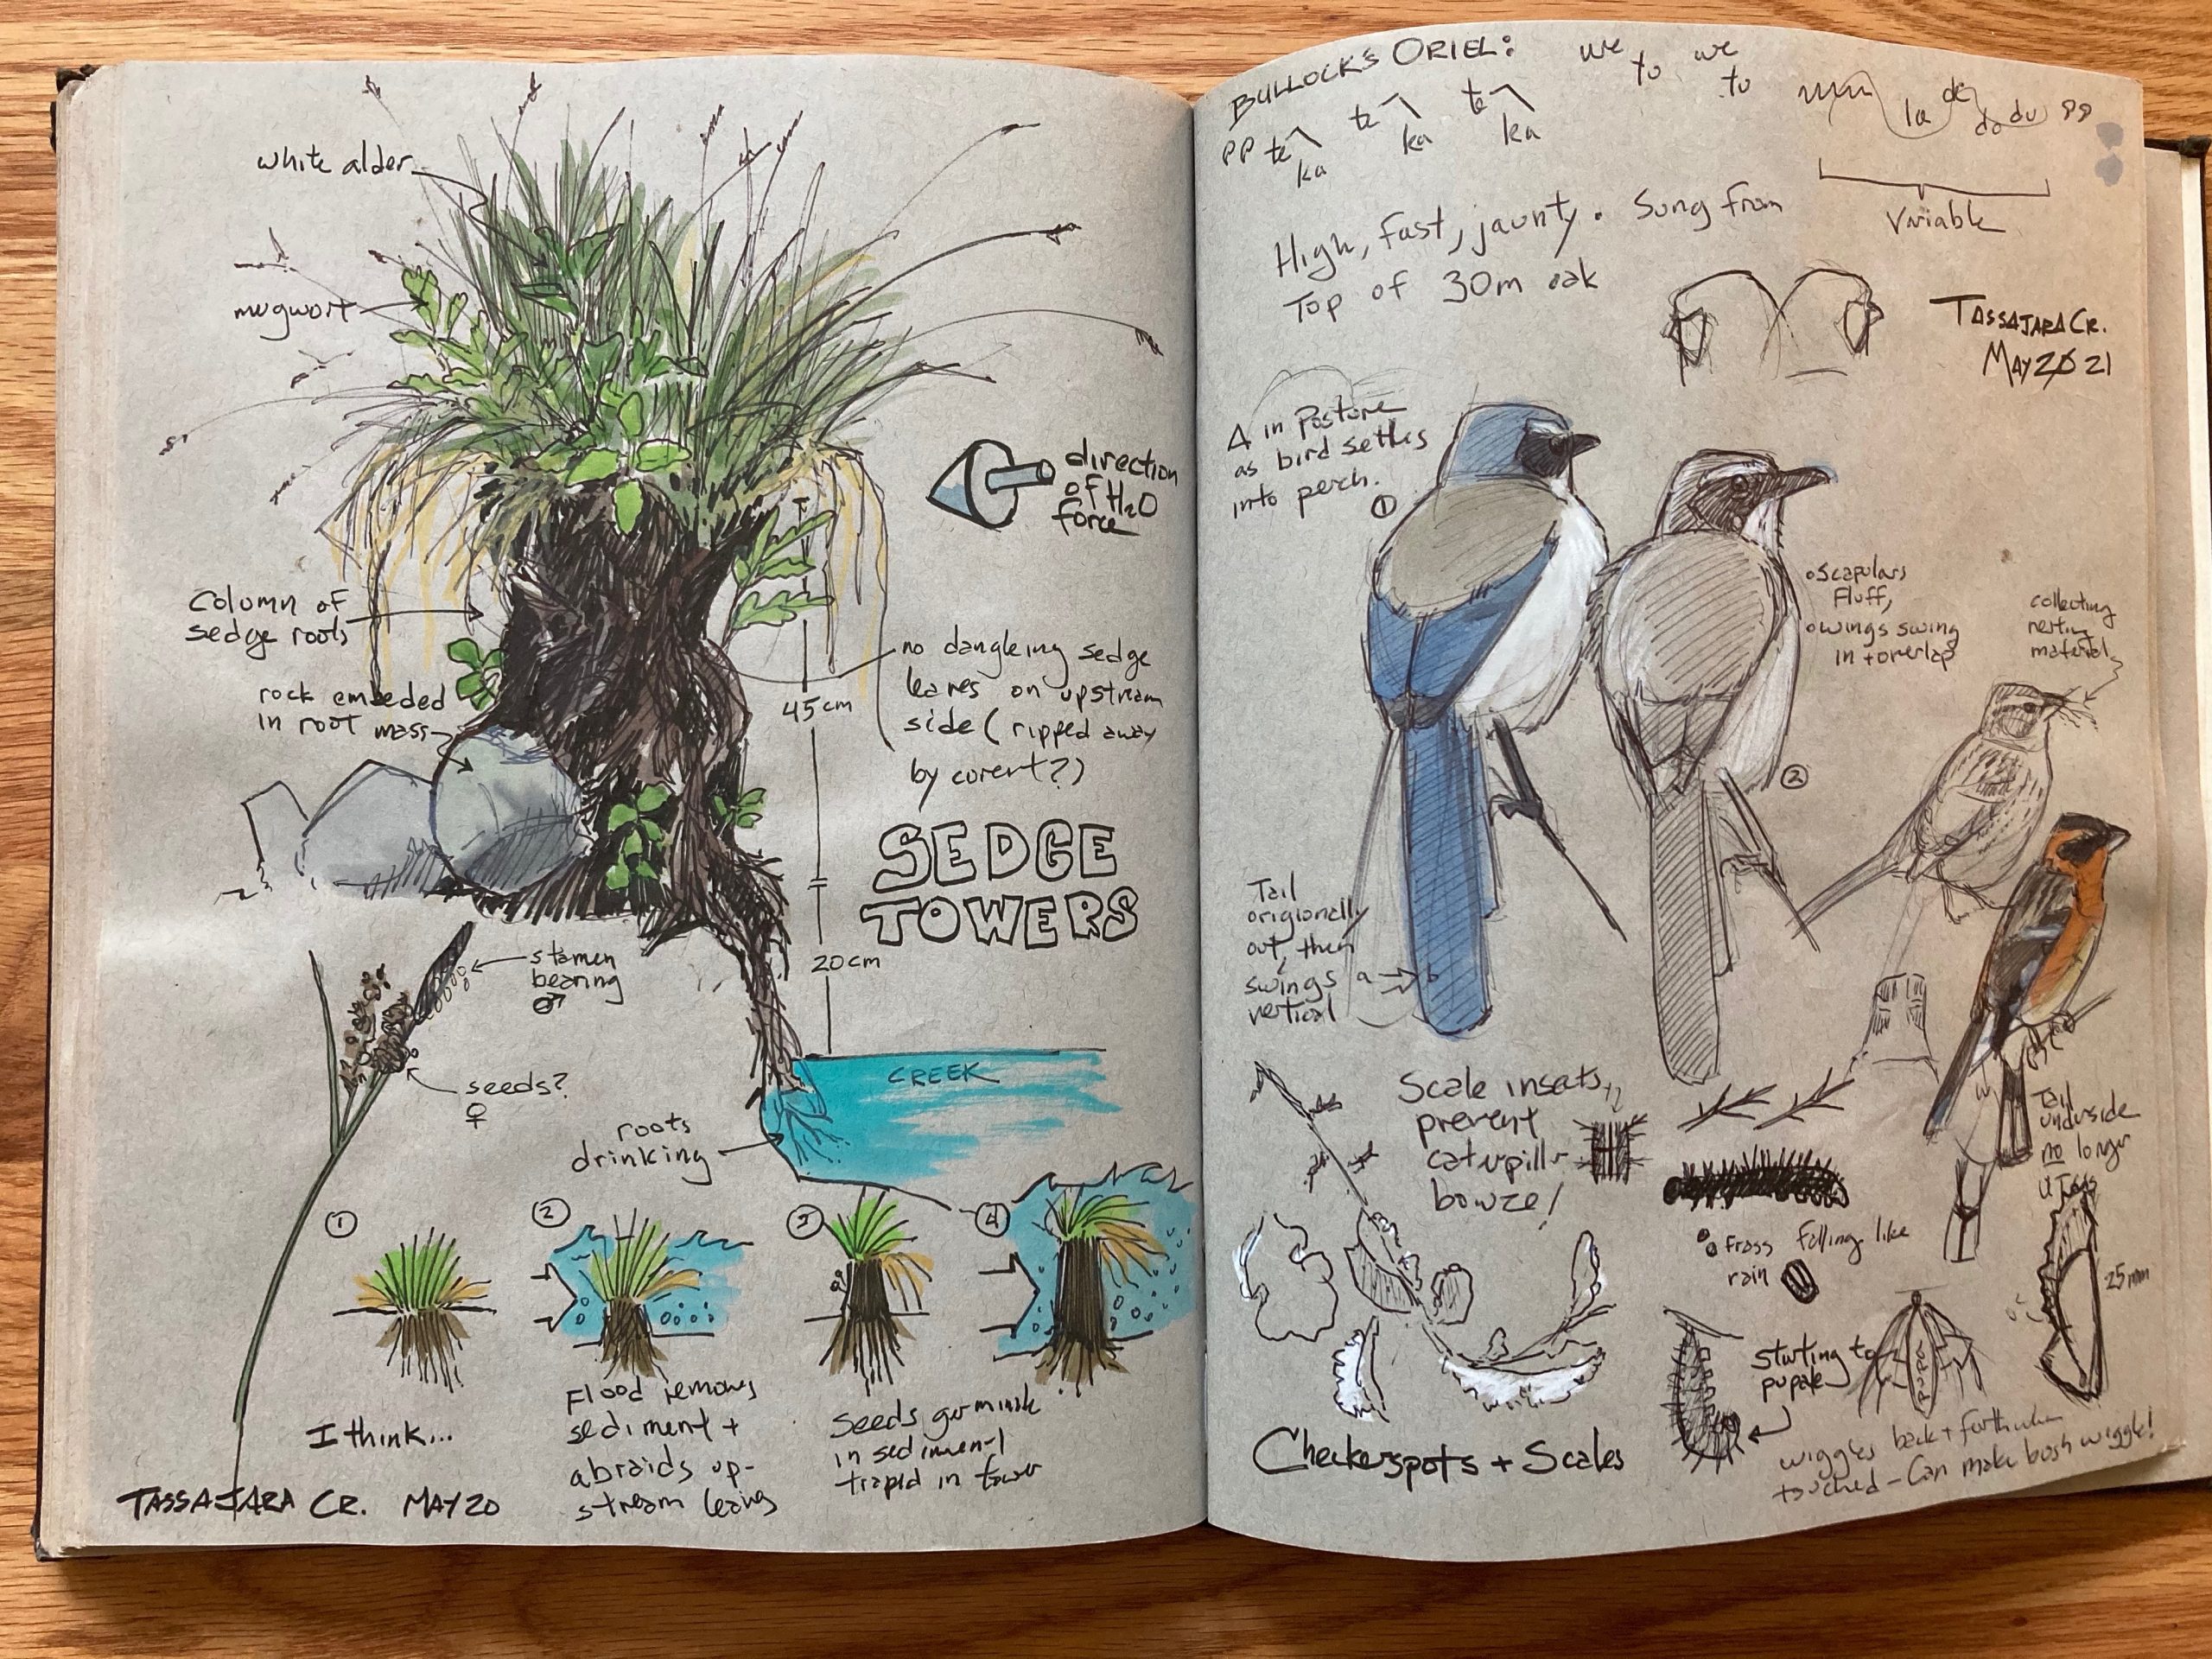 white alder
mugwort
direction
of H₂O
force
Column of
sedge roots
rock embeded
in root mass
45cm
no dangleing sedge
leaves on upstream
side (ripped away
by corent?)
SEDGE
TOWERS
20cm
stamen
bearing
♂
seeds?
♀
CREEK
roots
drinking
①
②
③
④
I think...
Flood removes
sediment +
abraids up-
stream leaves
Seeds germinate
in sediment
trapd in tower
TASSAJARA CR. MAY 20
BULLOCK'S ORIEL:
we to we to
la de do du pp
pp te ka te ka te ka
Variable
High, fast, jaunty. Sung from
Top of 30m oak
TASSAJARA CR.
MAY 20 21
Δ in Posture
as bird settles
into perch.
①
• Scapulars
Fluff,
• wings swing
in + overlap
②
collecting
nesting
material
Tail
origionally
out, then
swings
vertical
a → b
Scale insects
prevent
caterpillr
bowze!
Tail
underside
no longer
frass falling like
rain
25mm
starting to
pupate
pupa
wiggles back + forth when
touched - Can make bush wiggle!
Checkerspots + Scales